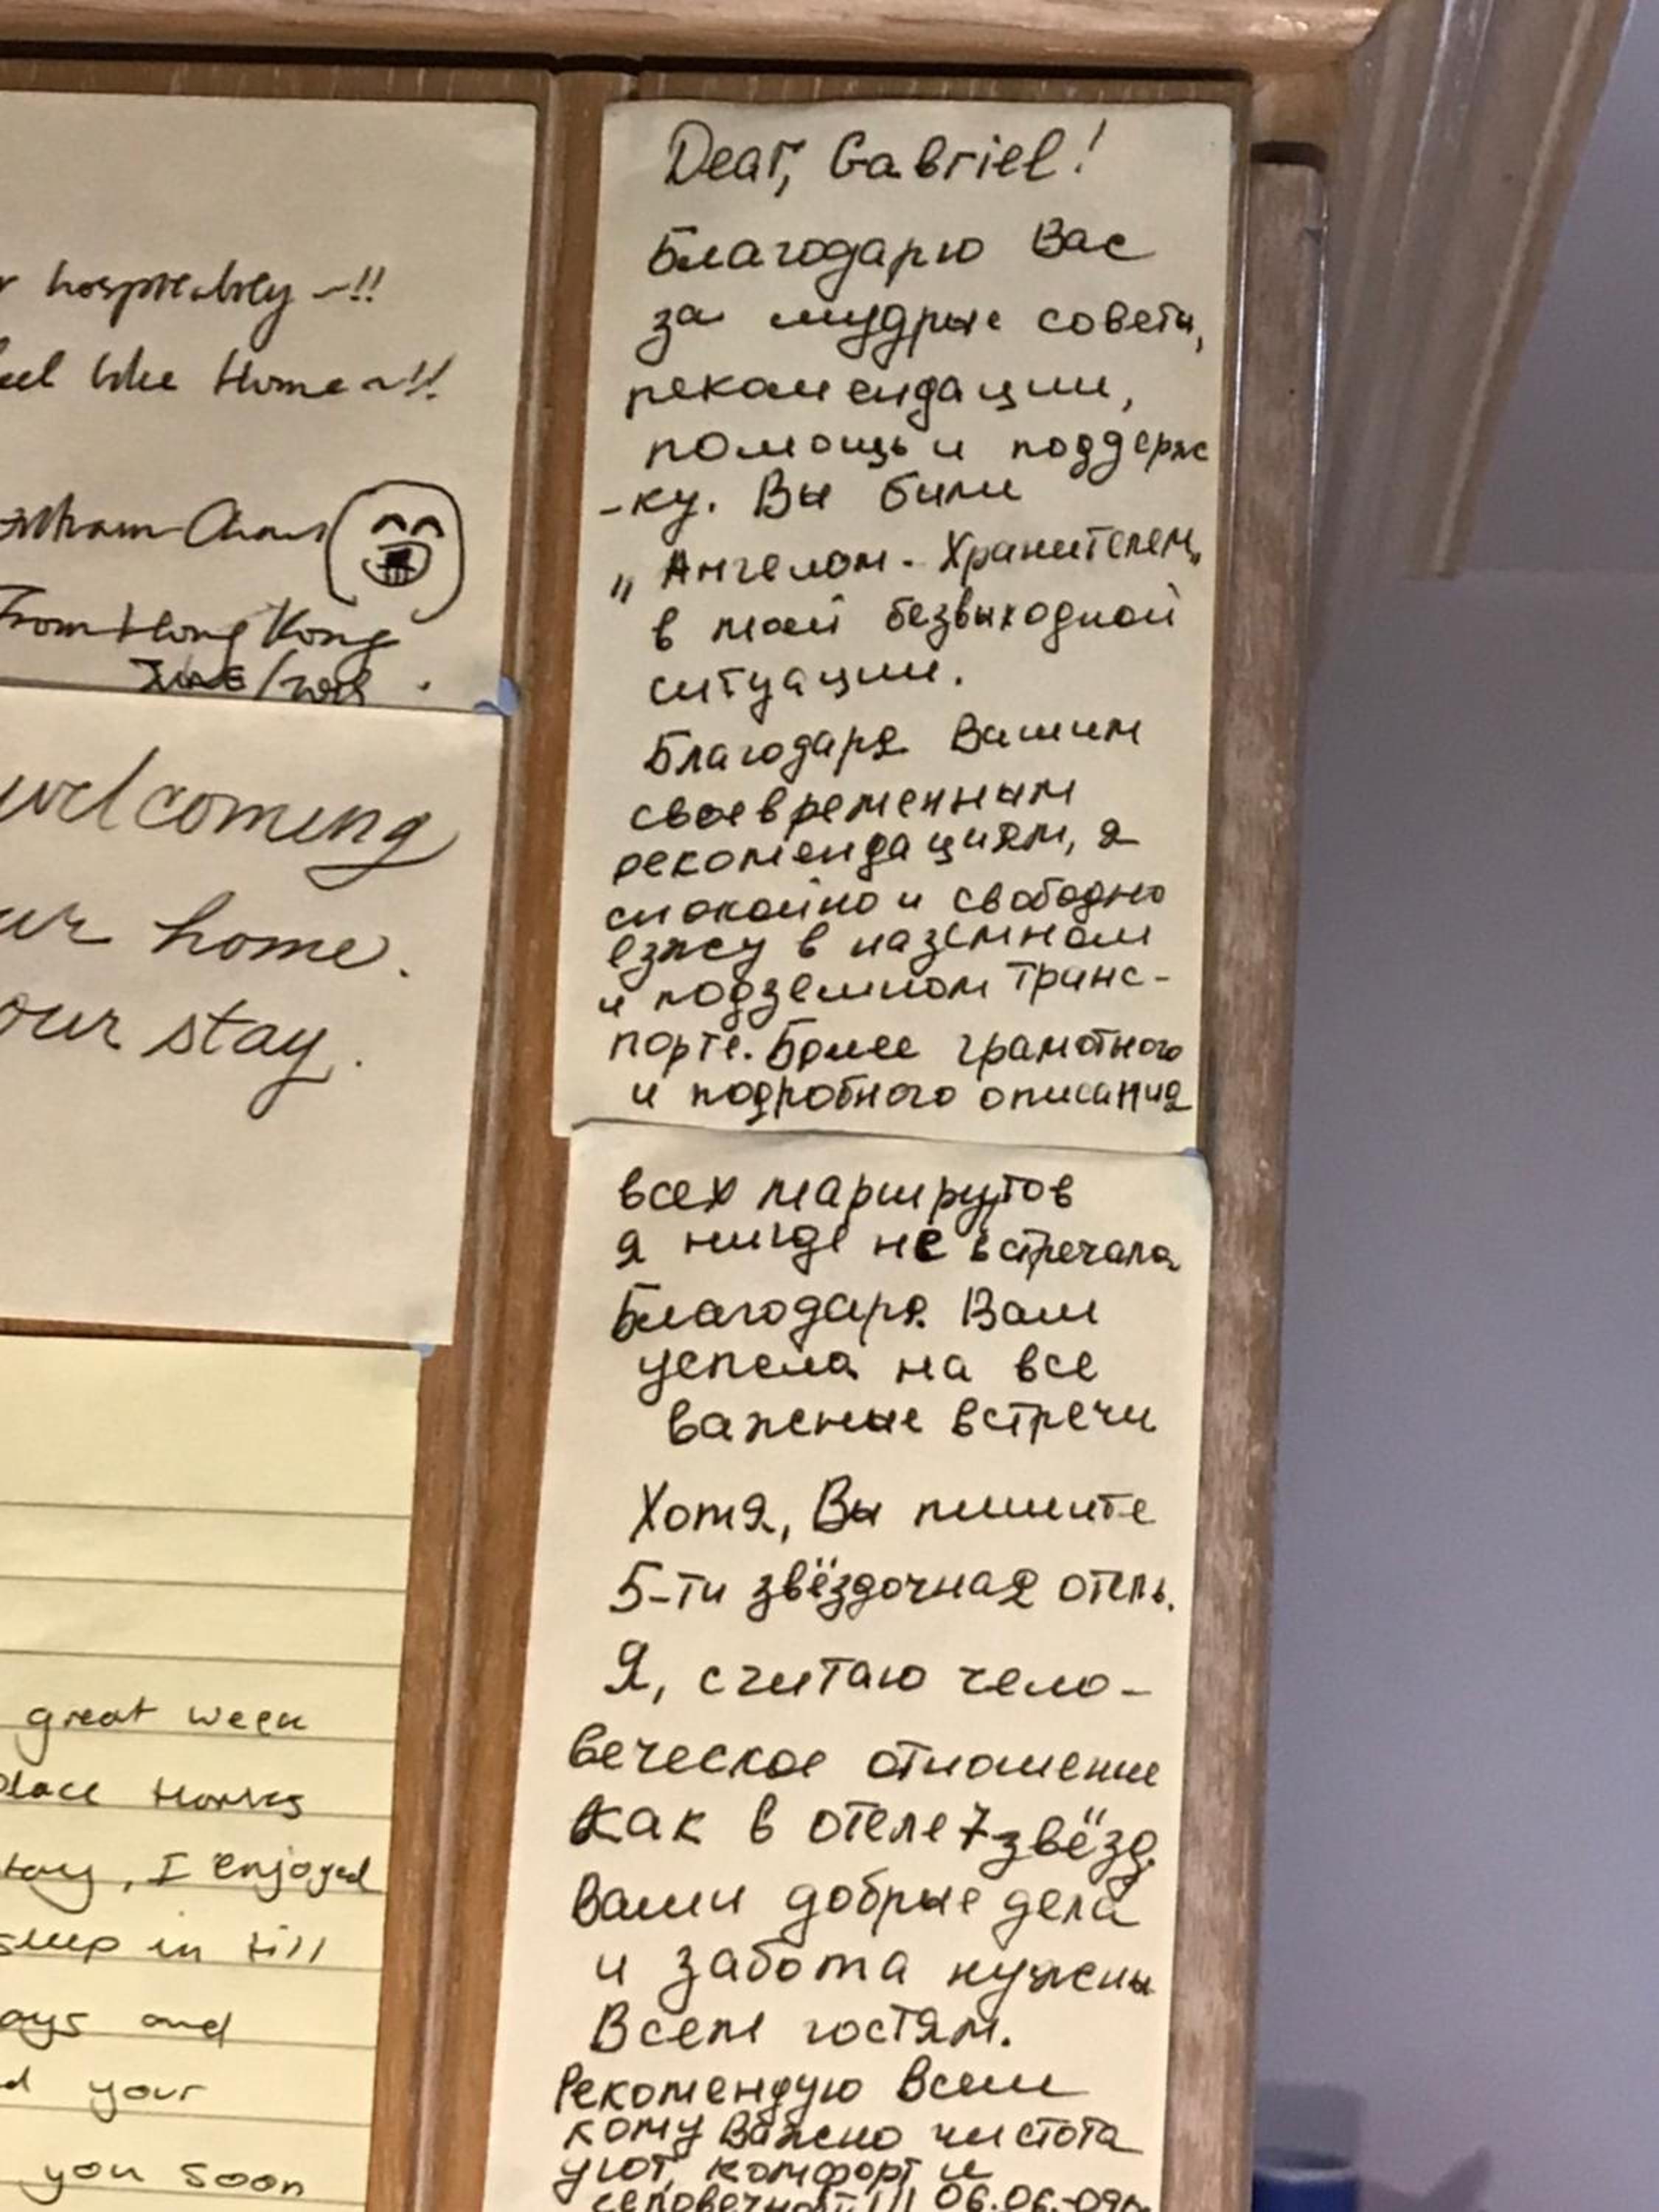 hospitability ~!!
like Home ~!!
From Hong Kong
welcoming
home.
our stay.
great week
place thanks
stay, I enjoyed
sleep in till
days and
your
you soon
Dear, Gabriel!
Благодарю Вас
за мудрые советы,
рекомендации,
помощь и поддерж
-ку. Вы были
„Ангелом - Хранителем„
в моей безвыходной
ситуации.
Благодаря Вашим
своевременным
рекомендациям, я
спокойно и свободно
езжу в наземном
и подземном транс-
порте. Более грамотного
и подробного описания
всех маршрутов
я нигде не встречала
Благодаря Вам
успела на все
важные встречи
Хотя, Вы пишите
5-ти звёздочная отель.
Я, считаю чело-
веческое отношение
как в отеле 7 звёзд.
Ваши добрые дела
и забота нужны
Всем гостям.
Рекомендую Всем
кому Важно чистота
уют, комфорт и
06.06.-09